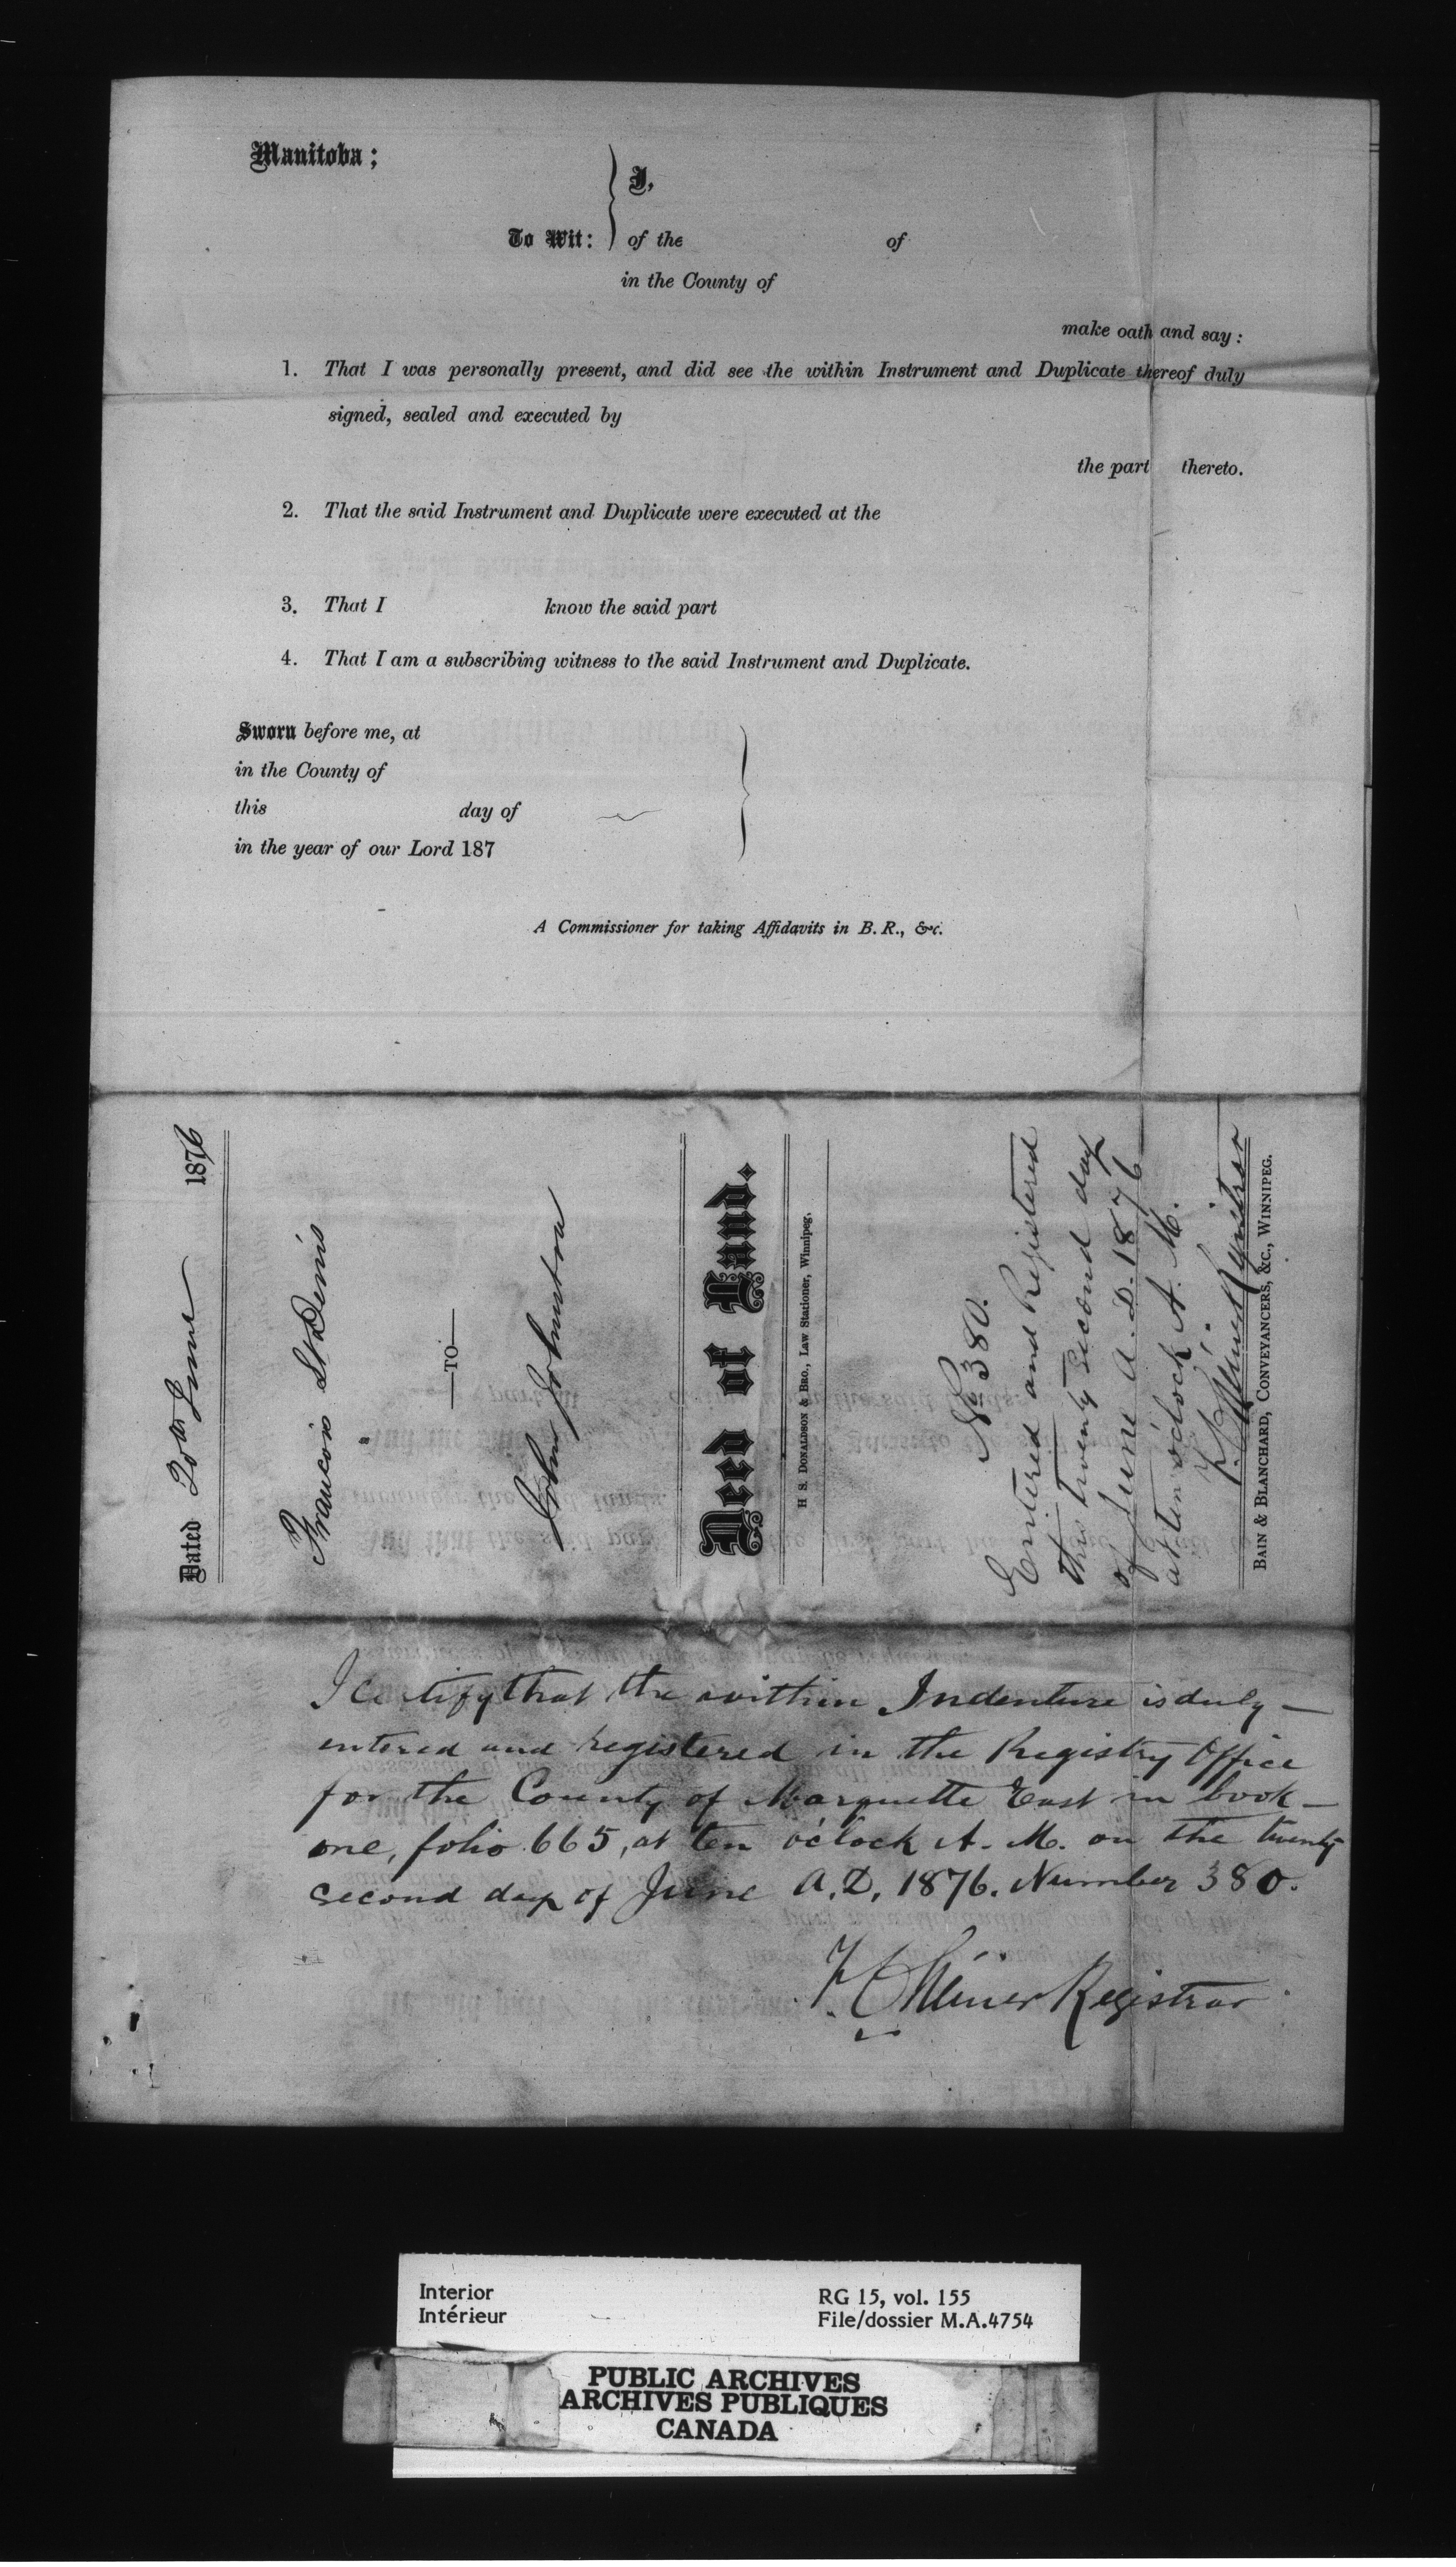 Manitoba;
I,
To Wit: of the of
in the County of
make oath and say:
1. That I was personally present, and did see the within Instrument and Duplicate thereof duly
signed, sealed and executed by
the part thereto.
2. That the said Instrument and Duplicate were executed at the
3. That I know the said part
4. That I am a subscribing witness to the said Instrument and Duplicate.
Sworn before me, at
in the County of
this day of
in the year of our Lord 187
A Commissioner for taking Affidavits in B. R., &c.
Dated 20th June 1876
Francois St Denis
TO
John Johnston
Deed of Land.
H S. DONALDSON & BRO., Law Stationer, Winnipeg,
No 380.
Entered and Registered
this twenty second day
of June A. D. 1876
at ten o'clock A. M.
Registrar
BAIN & BLANCHARD, CONVEYANCERS, &C., WINNIPEG.
I certify that the within Indenture is duly
entered and registered in the Registry Office
for the County of Marquette East in book
one, folio 665, at ten o'clock A. M. on the twenty
second day of June A. D. 1876. Number 380.
Registrar
Interior
Intérieur
RG 15, vol. 155
File/dossier M.A.4754
PUBLIC ARCHIVES
ARCHIVES PUBLIQUES
CANADA